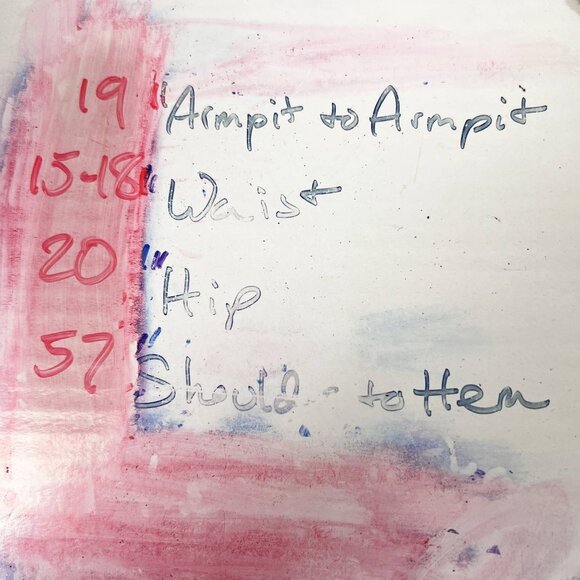 19" Armpit to Armpit
15-18" Waist
20" Hip
57" Should - to Hem